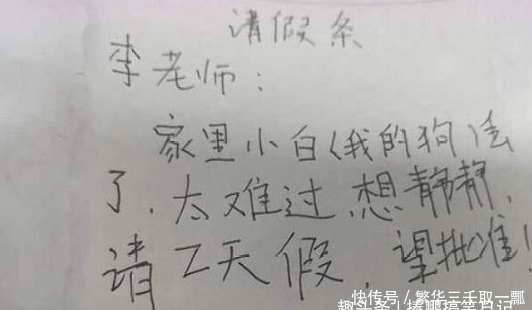 请假条
李老师：
家里小白(我的狗)丢
了.太难过.想静静.
请2天假.望批准!
快传号／繁华三千取一瓢